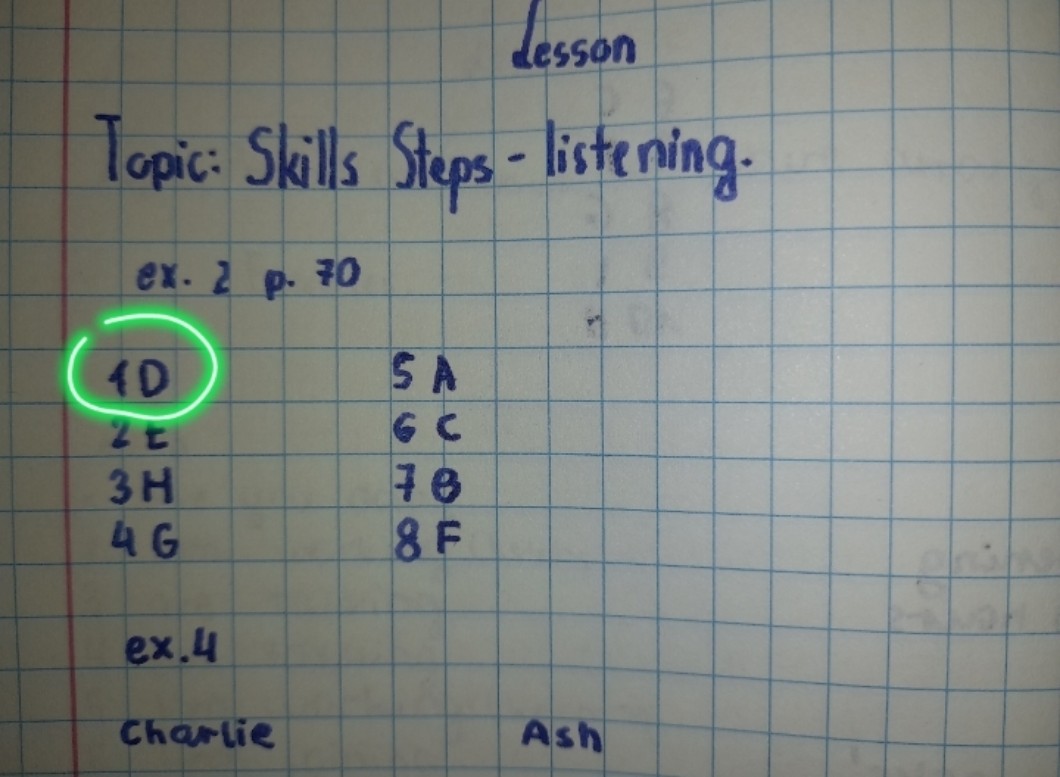 Lesson
Topic: Skills Steps - listening.
ex. 2 p. 70
1 D 5 A
2 E 6 C
3 H 7 B
4 G 8 F
ex. 4
Charlie Ash